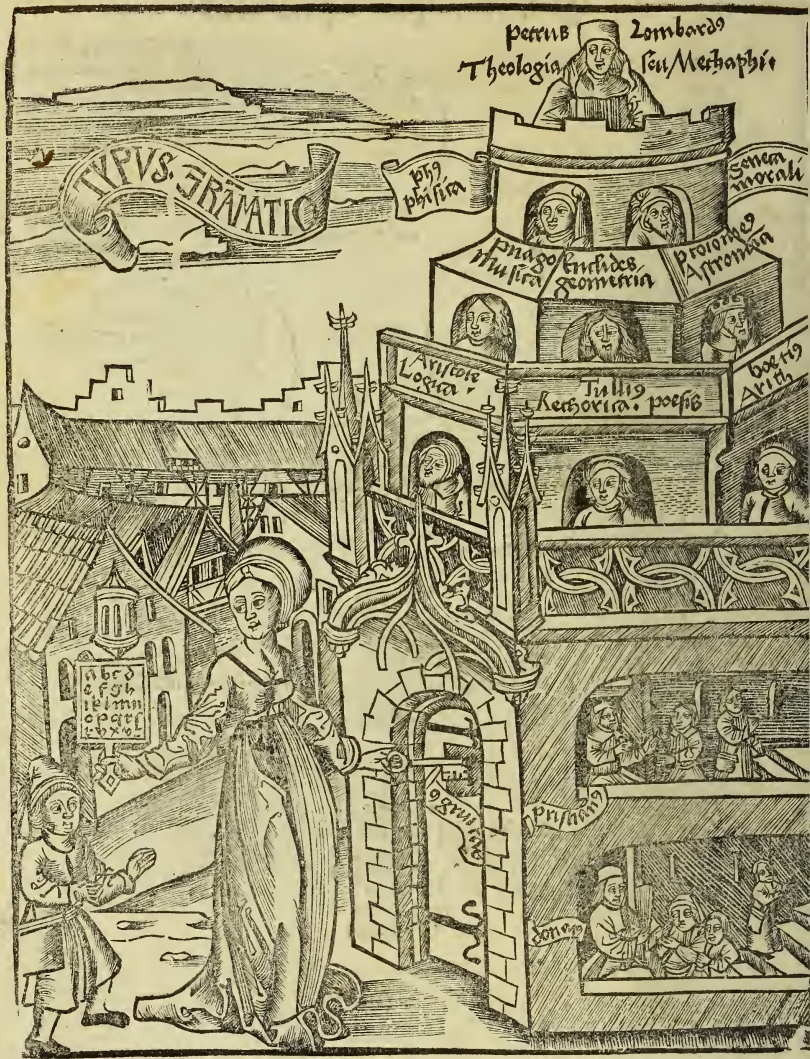 petrus Lombardꝰ
Theologia seu Methaphi.
TYPVS. GRÃMATIC
phꝰ
phisica
Seneca
morali
musica
Euclides
geometria
Ptolomeꝰ
Astronomia
Aristote
Logica.
Tulliꝰ
Rethorica. poesis
boetiꝰ
Arith
a b c d
e f g h
i k l m n
o p q r ſ
priſcianꝰ
donatꝰ